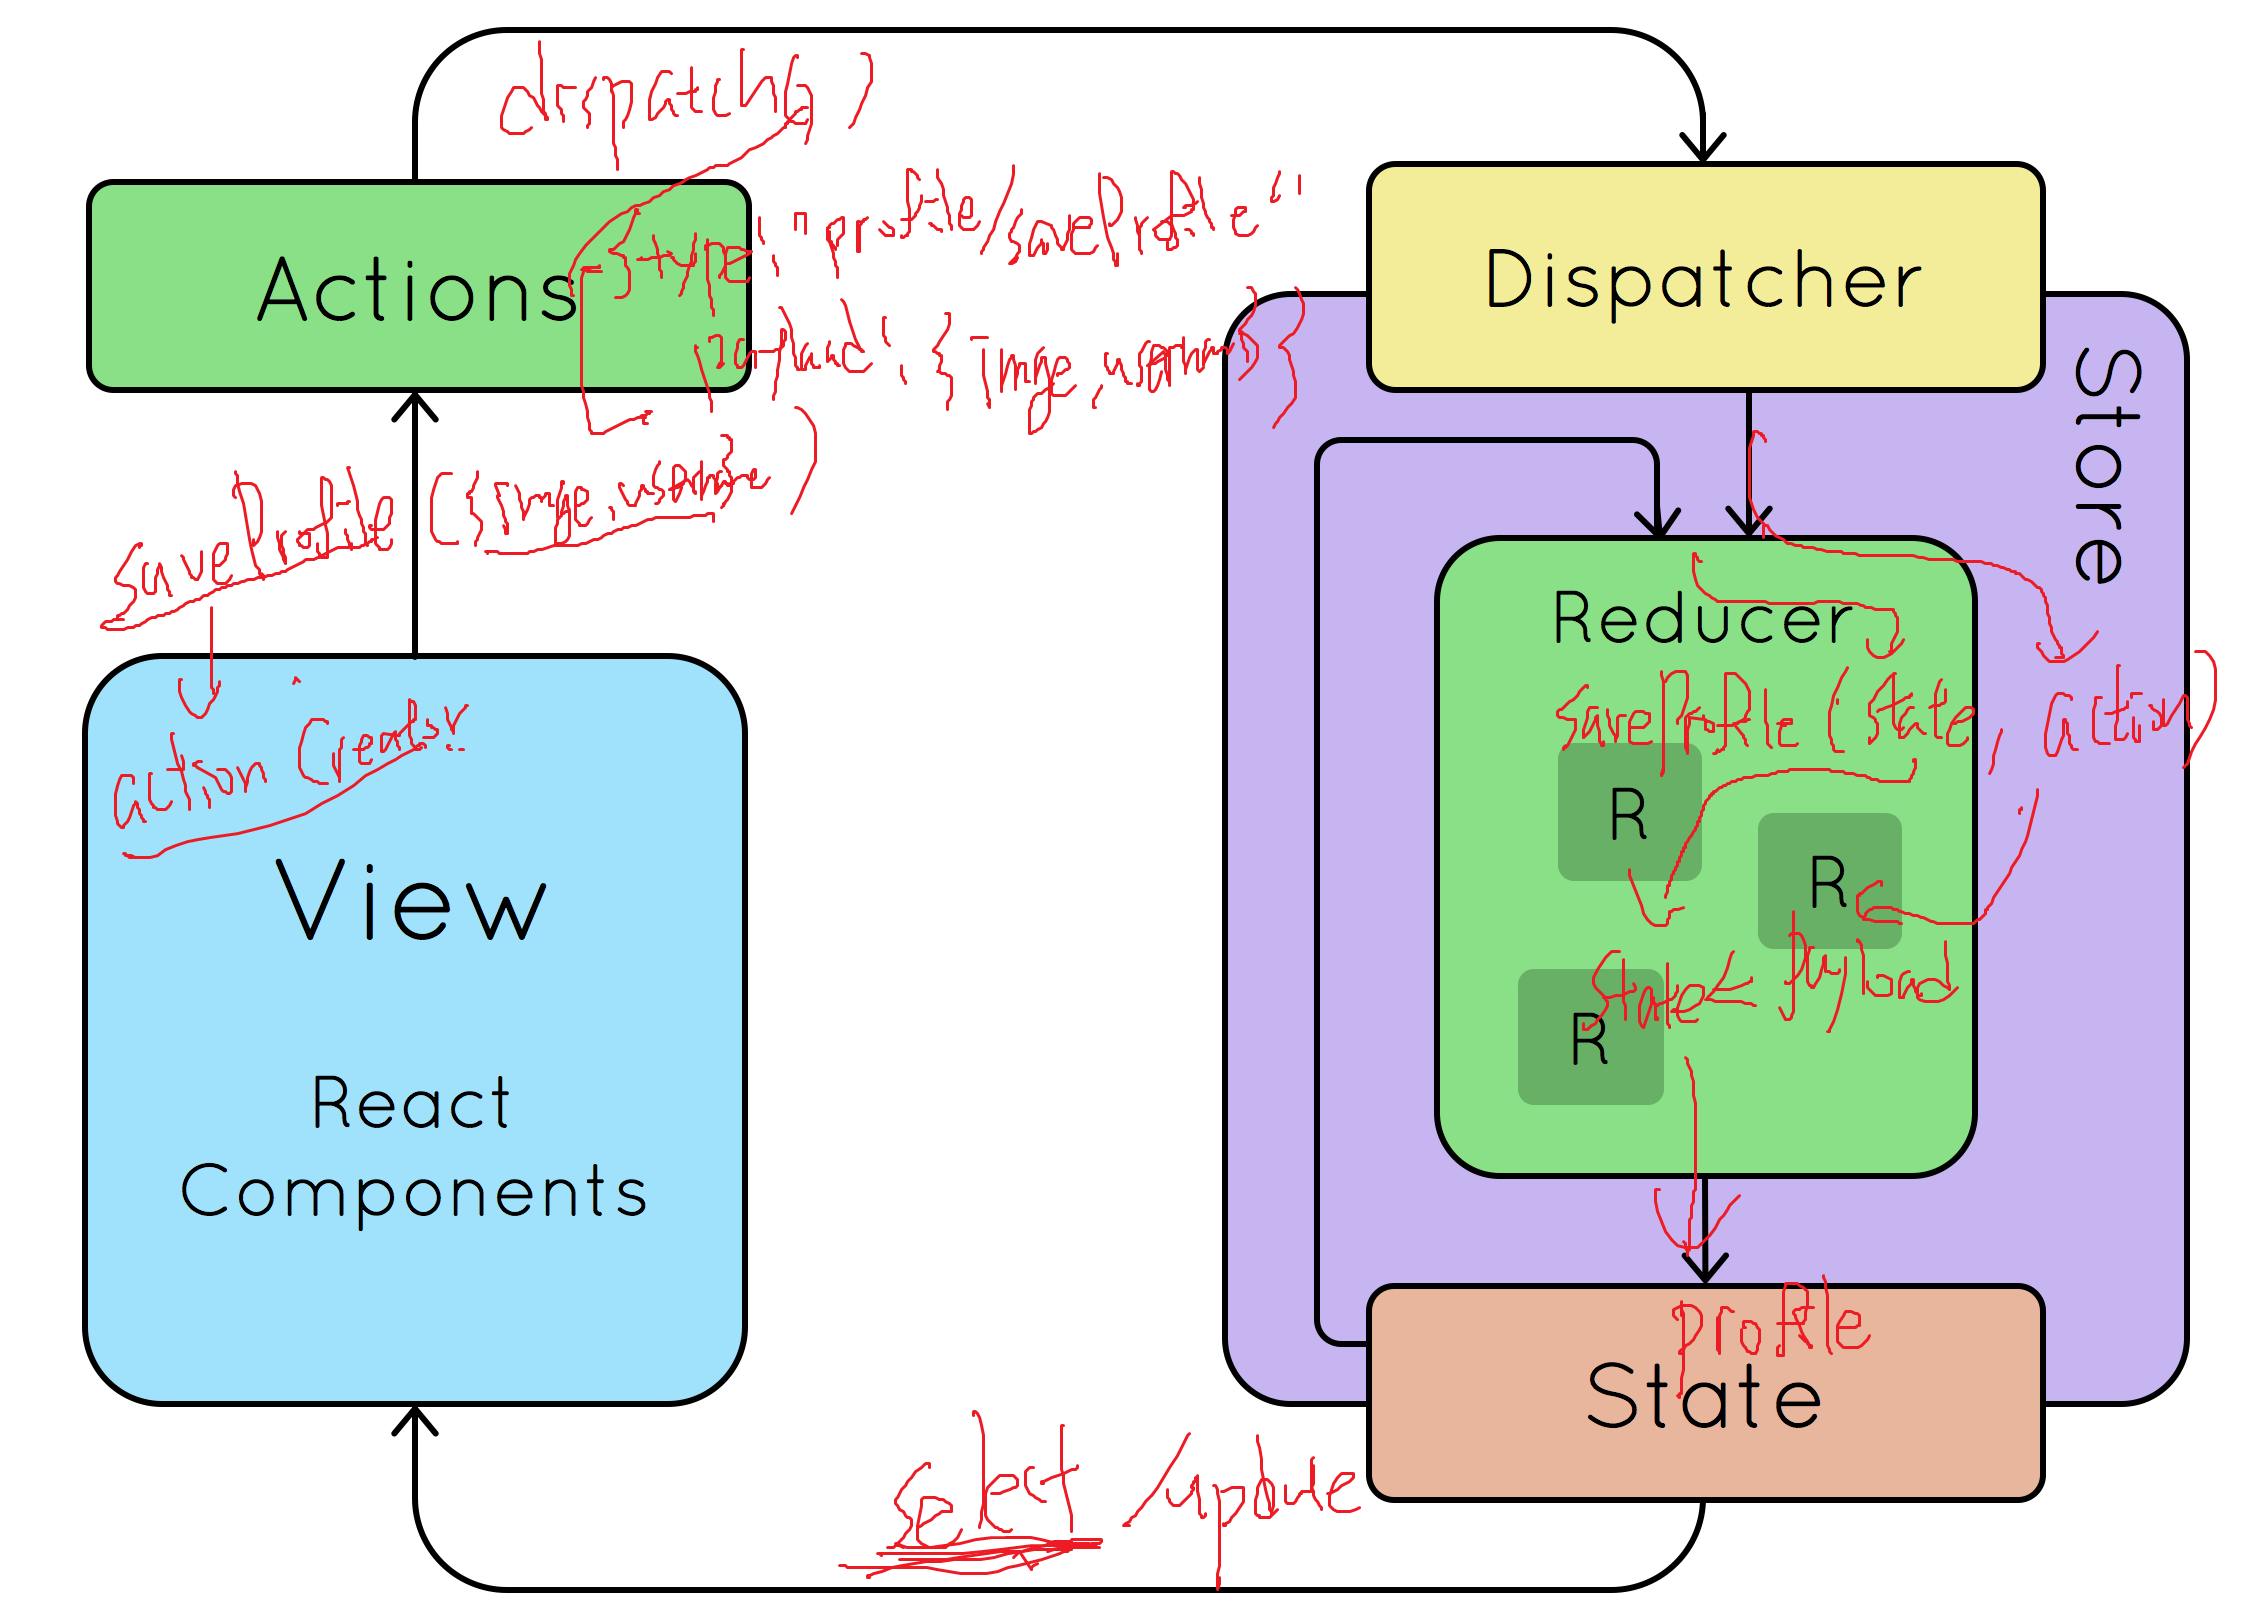 dispatch( )
Actions
{ type: "profile/saveProfile"
payload: { Image, username } }
saveProfile ({ Image, username } )
action Creator
View
React
Components
Dispatcher
Store
Reducer
saveProfile (state, action)
R
R
R
state ← payload
profile
State
select /update